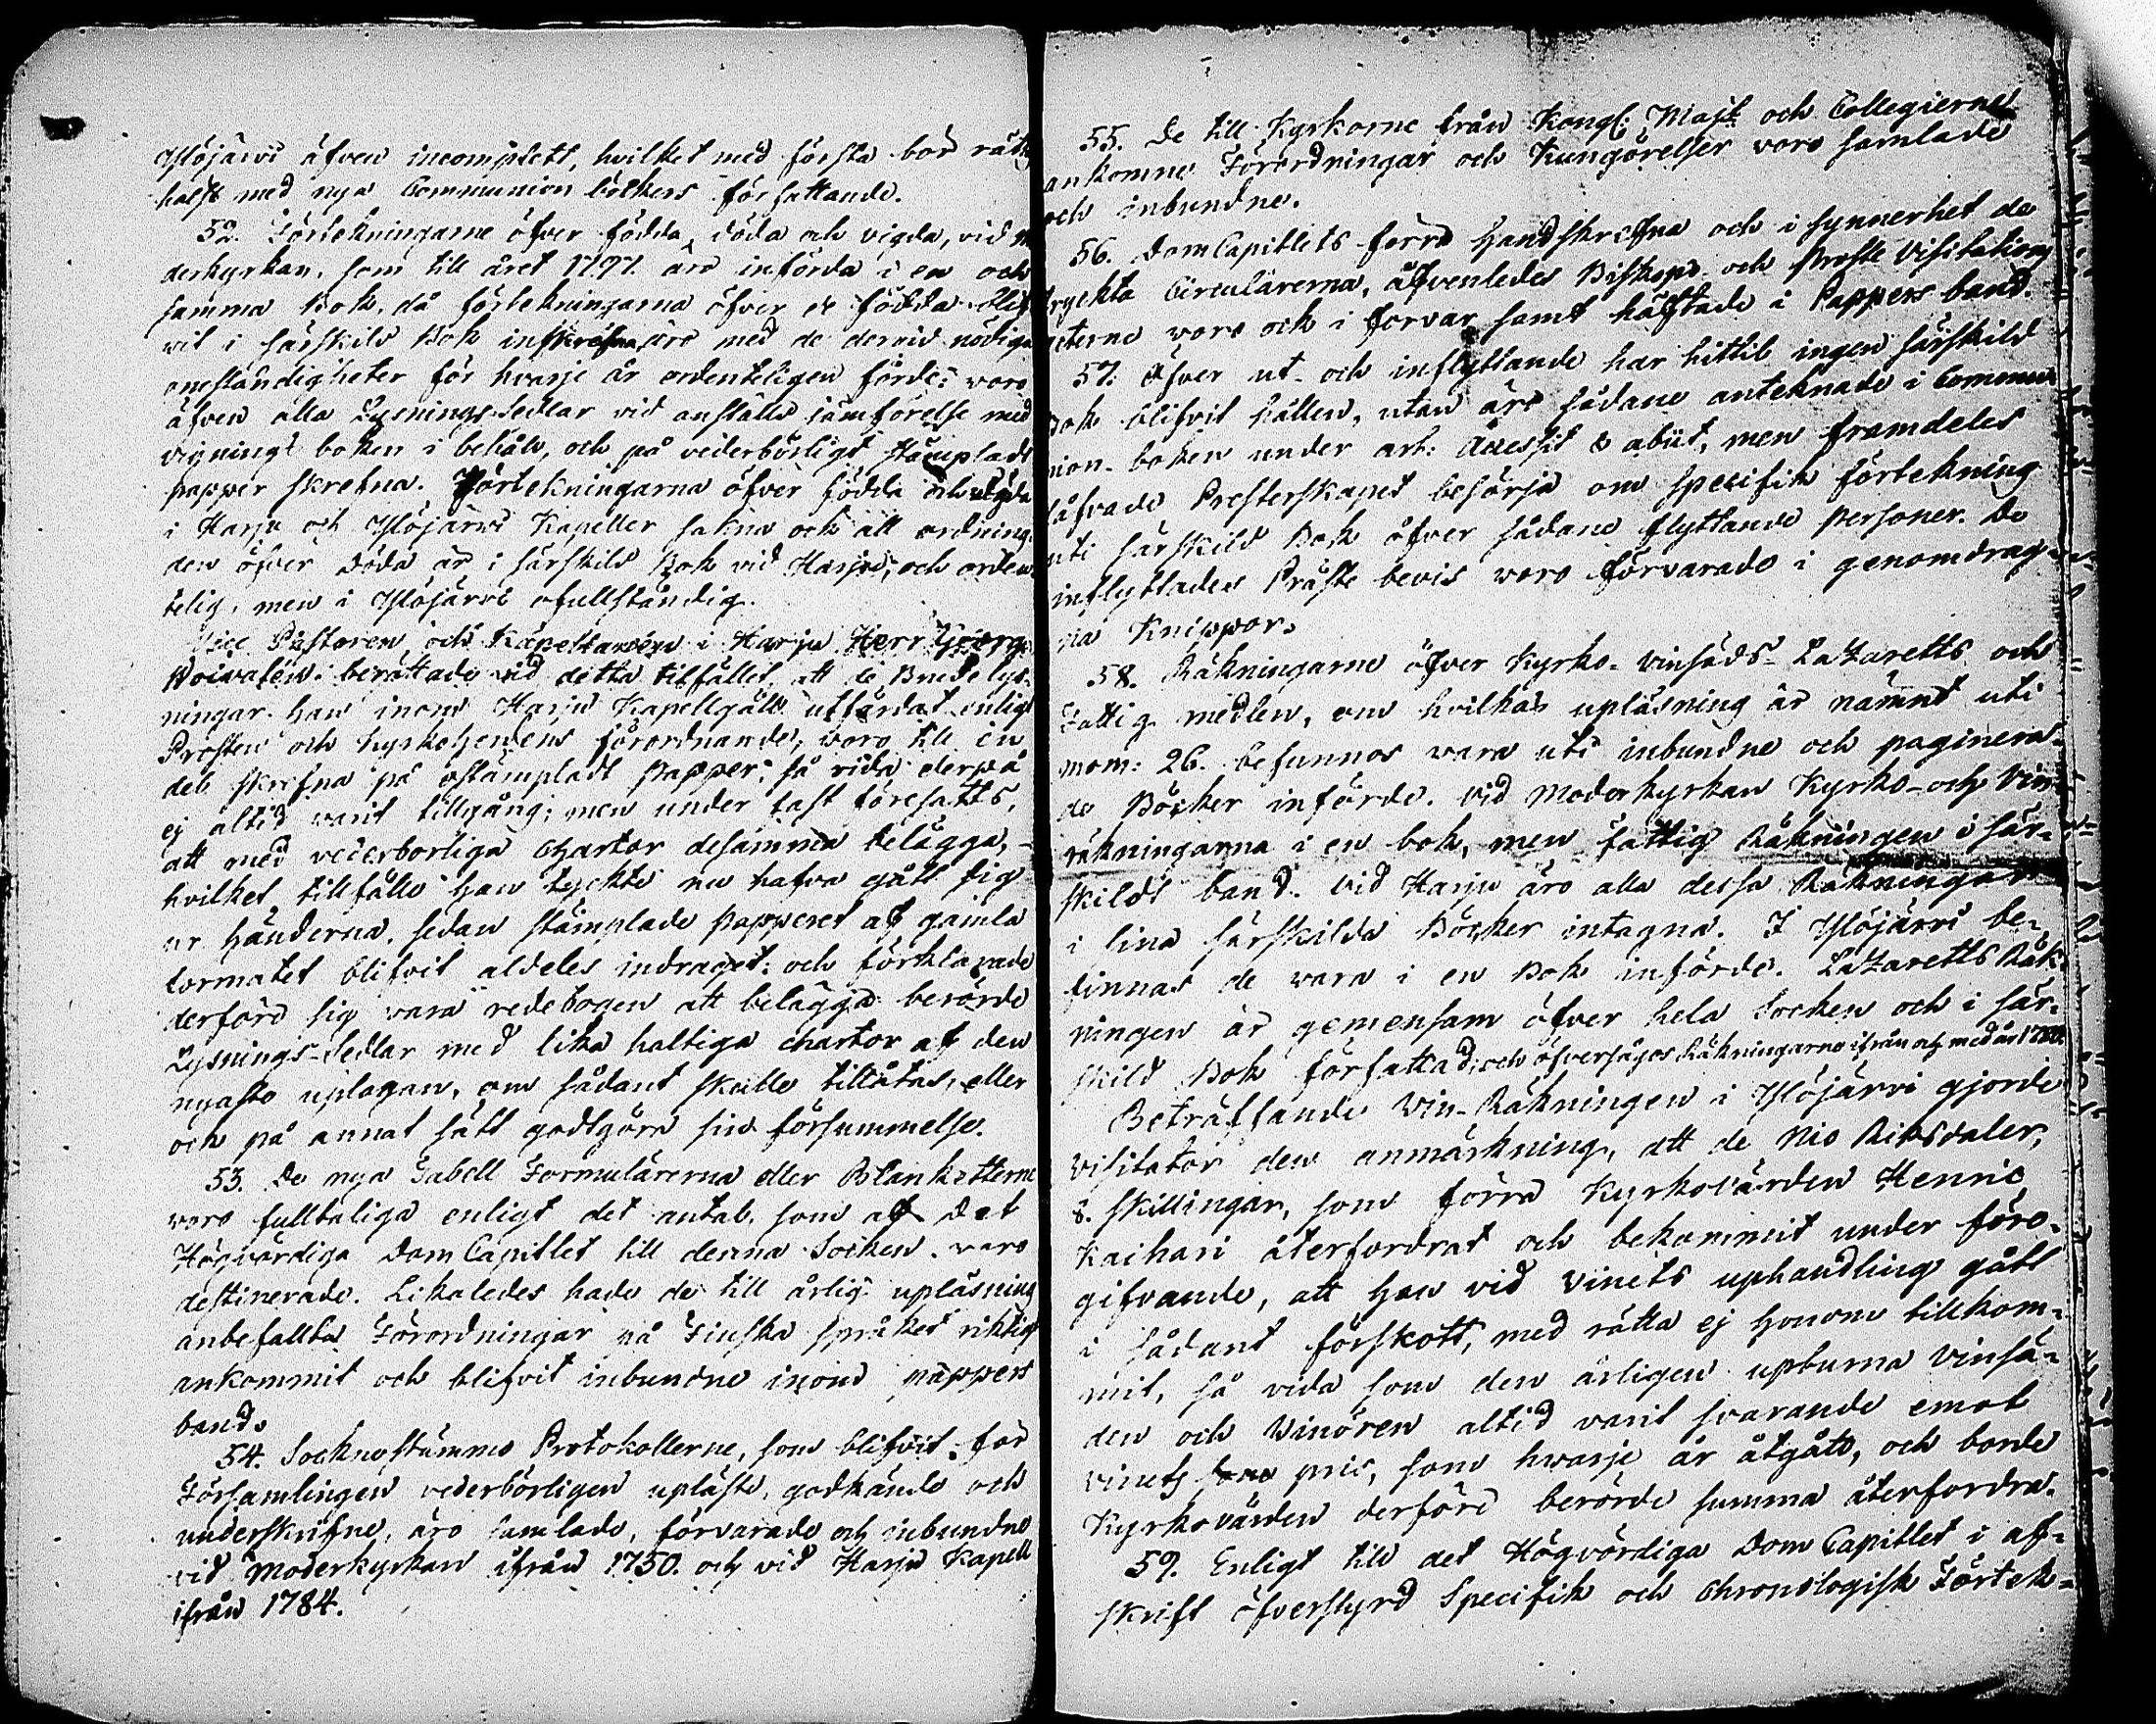 Ylöjärvi äfven incomplett, hvilket med första bör rätt
hälst med nya Communion böckers författande.
52. Förtekningarne öfver födda, döda och vigda, vid
derkyrkan, som till året 1797. äro införda i en och
samma Bok, då förtekningarna öfver de födda blif
vit i särskild Bok inskrefna, äro med de dervid nödiga
omständigheter för hvarje år ordenteligen förde; voro
äfven alla Lysnings-Sedlar vid anstäld jämförelse med
vignings boken i behåll, och på vederbörligt stämpladt
papper skrefna. Förtekningarna öfver födda och vigda
i Harju och Ylöjärvi Kapeller sakna och all ordning,
den öfver Döda är i särskild Bok vid Harju, och orden
telig, men i Ylöjärvi ofullständig.
Vice Pastoren och Kapellanen i Harju Herr Georg
berättade vid detta tilfället, att de Brudelys-
ningar han inom Harju Kapellgäll utfärdat enligt
Prosten och Kyrkoherdens förordnande, voro till en
del skrifna på ostämpladt papper, så vida derpå
ej altid varit tillgång; men under fast föresatts,
att med vederbörliga Chartor desamma belägga, -
hvilket tillfälle han tyckte nu hafva gått sig
ur händerna, sedan stämplade papperet af gamla
formatet blifvit aldeles indraget: och förklarade
derföre sig vara redebogen att belägga berörde
Lysnings-Sedlar med lika haltiga chartor af den
nyaste uplagan, om sådant skulle tillåtas, eller
och på annat sätt godtgöra sin försummelse.
53. De nya Tabell Formulärerna eller Blanketterne
voro fulltaliga enligt det antal, som af Det
Högvördiga Dom Capitlet till denna Socken voro
destinerade. Likaledes hade de till årlig upläsning
anbefallta Förordningar på Finska språket riktigt
ankommit och blifvit inbundne inom pappers
band.
54. Socknestämmo Protokollerne, som blifvit för
Församlingen vederbörligen upläste, godkände och
underskrifne, äro samlade, förvarade och inbundne
vid Moderkyrkan ifrån 1750. och vid Harju Kapell
ifrån 1784.
55. De till Kyrkorne från Kongl: Majt och Collegierne
ankomne Förordningar och Kungörelser voro samlade
och inbundne.
56. DomCapitlets förra Handskrefna och i synnerhet de
tryckta Circulärerna, äfvenledes Biskops- och Proste Visitations
acterne voro och i förvar samt häftade i Pappers band.
57. Öfver ut- och inflyttande har hittils ingen särskild
Bok blifvit hållen, utan äro sådane anteknade i Commu
nion-boken under art: Accessit & abiit, men framdeles
låfvade Presterskapet besörja om specifik förtekning
uti särskild Bok öfver sådane flyttande personer. De
inflyttades Präste bevis voro förvarade i genomdrag-
na Knippor.
58. Räkningarne öfver Kyrko- vinsäds- Lazaretts och
Fattig medlen, om hvilkas upläsning är nämnt uti
mom: 26. befunnos vara uti inbundne och paginera-
de Böcker införde. Vid Moderkyrkan Kyrko- och Vin
räkningarna i en bok, men fattig Räkningen i sär-
skildt band. Vid Harju äro alla dessa Räkningar
i sina särskilda Böcker intagna. I Ylöjärvi be-
finnas de vara i en Bok införde. Lazaretts Räk
ningen är gemensam öfver hela Socken och i sär-
skild Bok författad; och öfversågos Räkningarne ifrån och med år
Beträffande Vin-Räkningen i Ylöjärvi gjorde
Visitator den anmärkning, att de Nio Riksdaler,
8. Skillingar, som förra Kyrkovärden Henric
Kaihari återfordrat och bekommit under före-
gifvande, att han vid vinets uphandling gått
i sådant förskott, med rätta ej honom tillkom-
mit, så vida som den årligen upburna vinsä-
den och Vinören altid varit svarande emot
vinets pris, som hvarje år åtgått, och borde
Kyrkovärden derföre berörde summa återfordra.
59. Enligt till det Högvördiga DomCapitlet i af-
skrift öfverstyrd Specifik och Chronologisk Förtek-